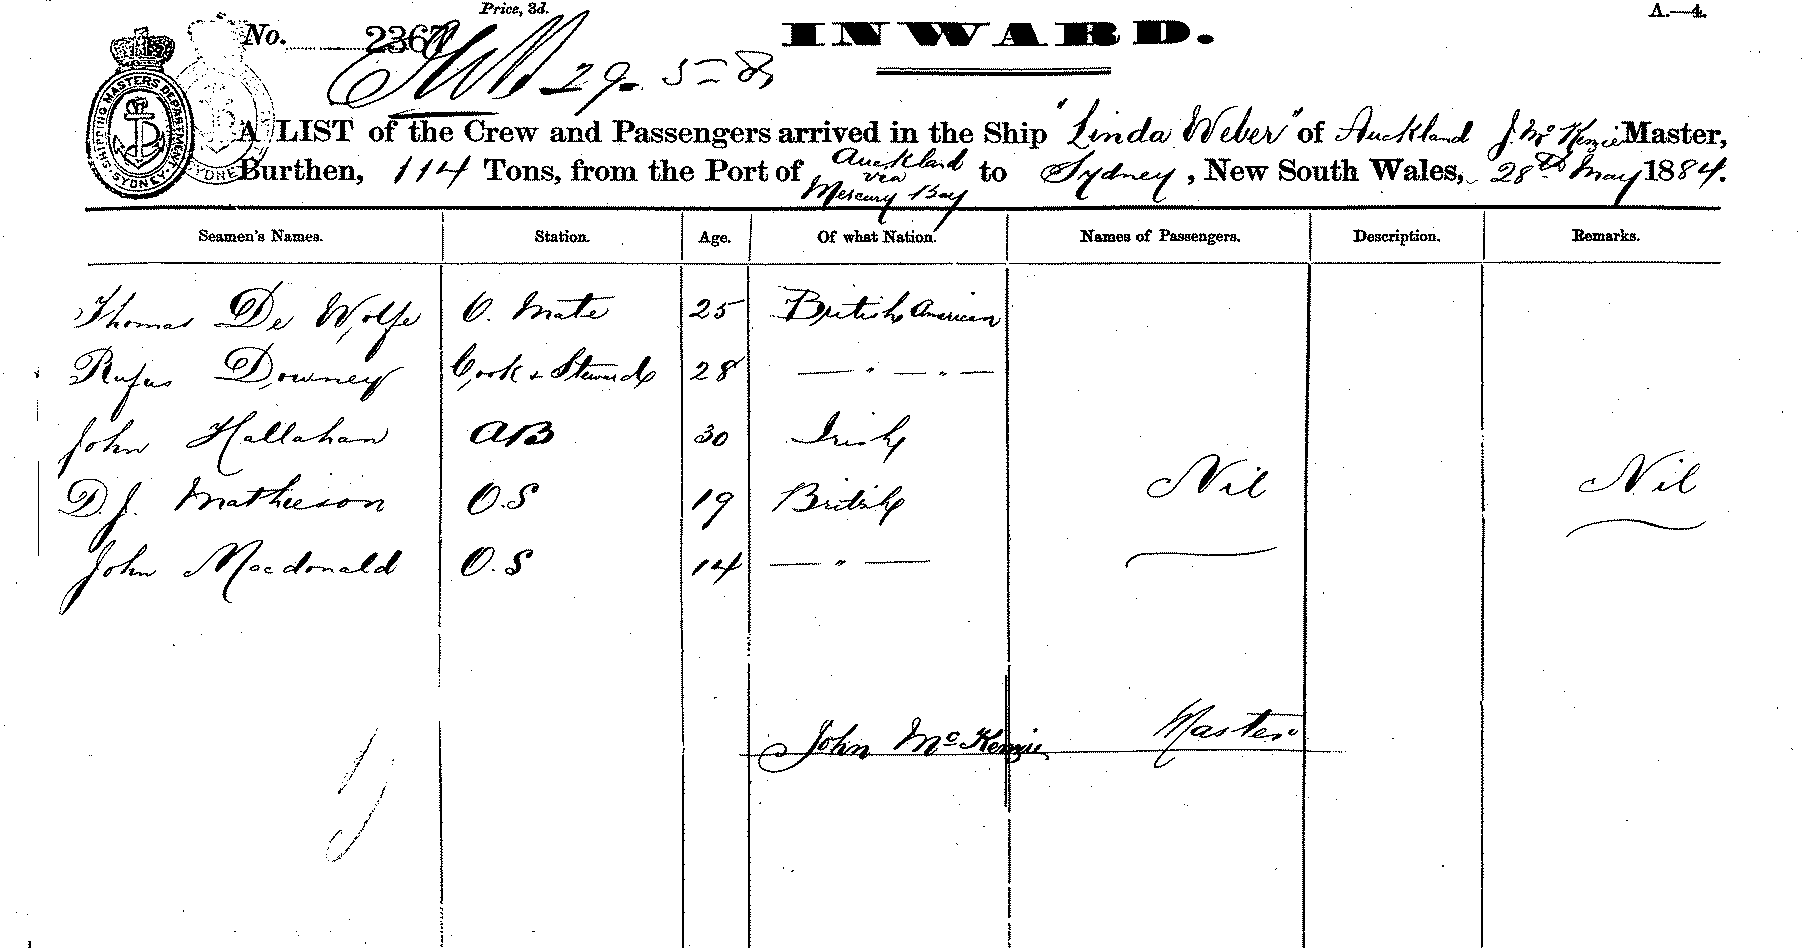 Price, 3d.
A.—4.
No. 2367
INWARD.
29. 5 - 8
SHIPPING MASTERS DEPARTMENT SYDNEY
A LIST of the Crew and Passengers arrived in the Ship "Linda Weber" of Auckland J. Mc Kenzie Master,
Burthen, 114 Tons, from the Port of Auckland via Mercury Bay to Sydney, New South Wales, 28th May 1884.
Seamen's Names. Station. Age. Of what Nation. Names of Passengers. Description. Remarks.
Thomas De Wolfe O. Mate 25 British American
Rufus Downey Cook & Steward 28 — " — " —
John Hallahan AB 30 Irish
D. J. Mathieson O.S 19 British Nil Nil
John Macdonald O.S 14 — " —
John Mc Kenzie Master